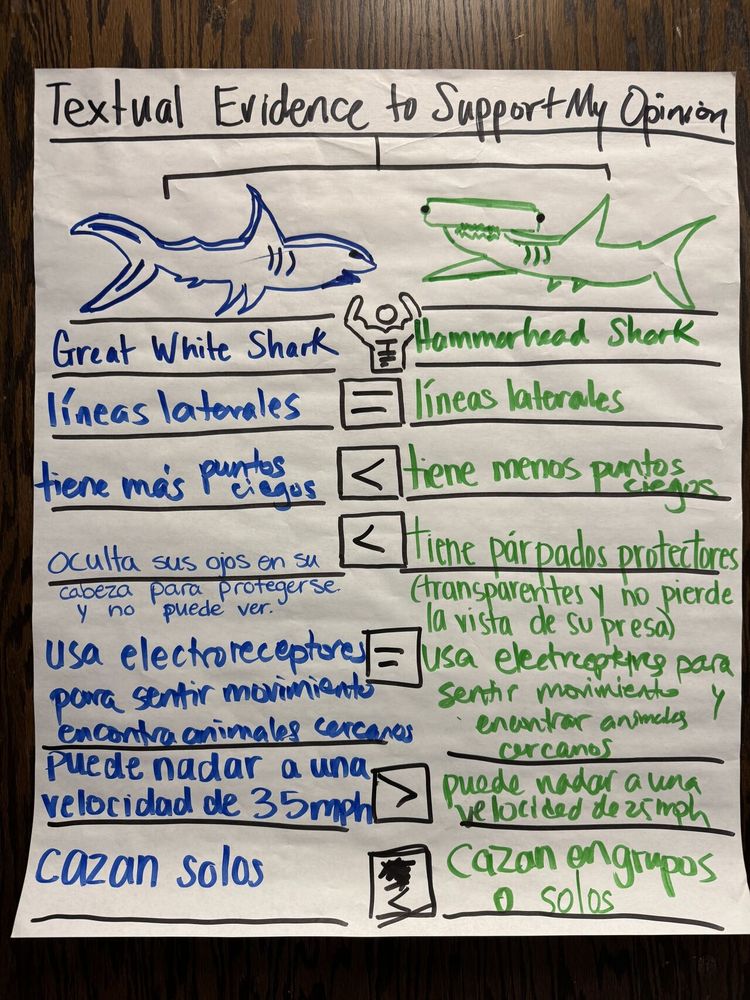 Textual Evidence to Support My Opinion
Great White Shark
Hammerhead Shark
líneas laterales
=
líneas laterales
tiene más puntos
ciegos
<
tiene menos puntos
ciegos
oculta sus ojos en su
cabeza para protegerse.
y no puede ver.
<
tiene párpados protectores
(transparentes y no pierde
la vista de su presa)
usa electroreceptores
para sentir movimiento
encontra animales cercanos
=
usa para
sentir movimiento y
encontrar animales
cercanos
puede nadar a una
velocidad de 35mph
>
puede nadar a una
velocidad de 25mph
cazan solos
<
cazan en grupos
o solos